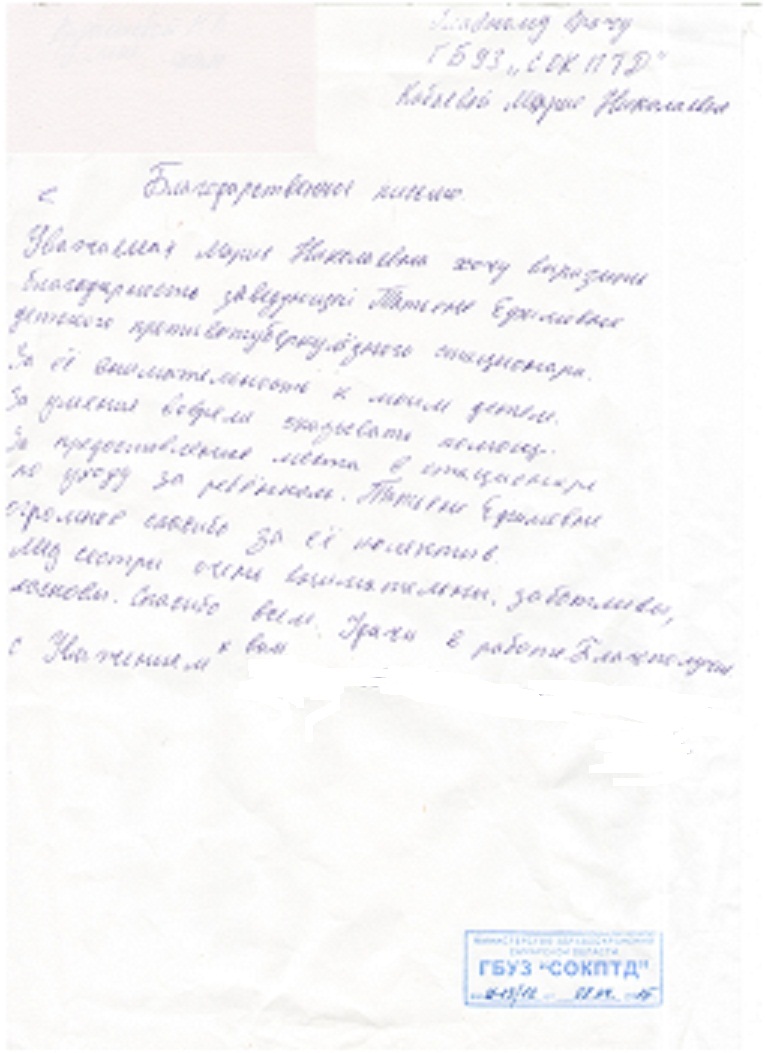 Главному врачу
ГБУЗ "СОКПТД"
Марие Николаевне
Благодарственное письмо.
Уважаемая Мария Николаевна хочу выразить
благодарность заведующей Татьяне Ефимовне
детского противотуберкулёзного стационара.
За её внимательность к моим детем.
За умения вовремя оказывать помощь.
За предоставление места в стационаре
по уходу за ребёнком. Татьяне Ефимовне
огромное спасибо за её колектив.
Мед сестры очень внимательны, заботливы,
ласковы. Спасибо всем. Удачи в работе. Благополучие
с Уважением к вам
МИНИСТЕРСТВО ЗДРАВООХРАНЕНИЯ
САМАРСКОЙ ОБЛАСТИ
ГБУЗ "СОКПТД"